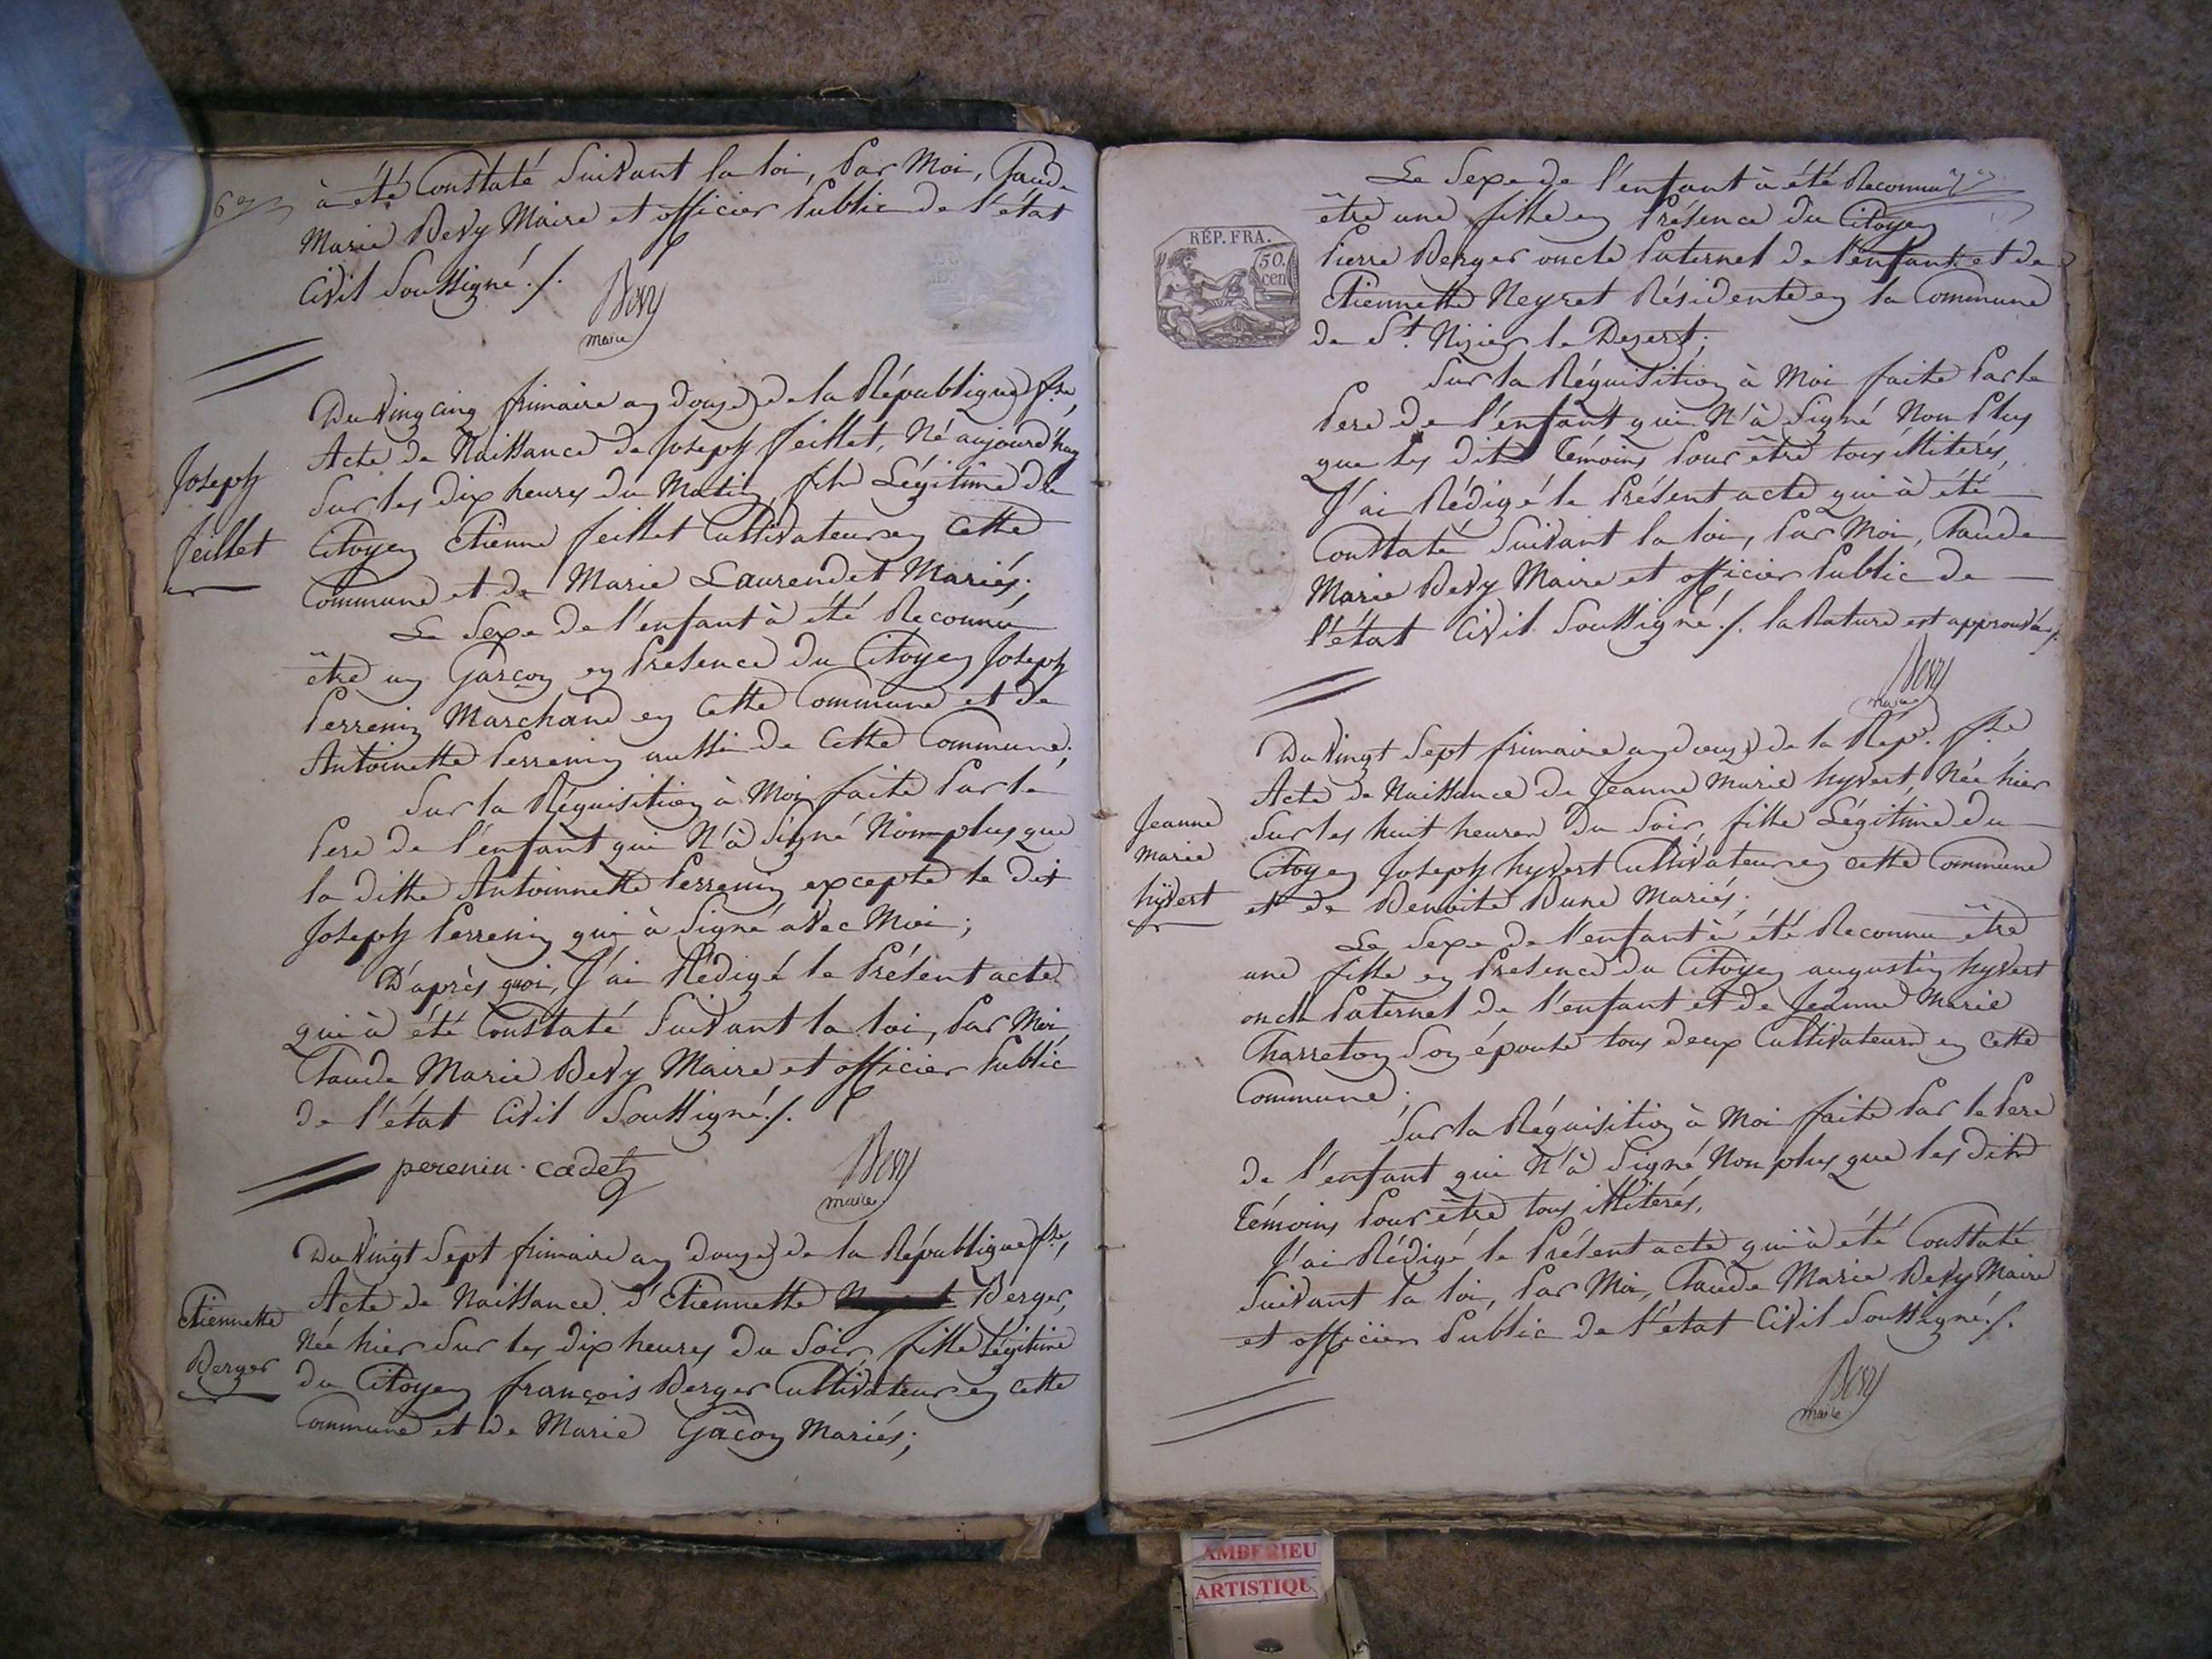 6e
à été Constaté Suivant la loi, Par Moi, Claude
Marie Bevy Maire et officier Public de l'état
Civil Soussigné ./.
Bevy
maire
Du Vingt cinq frimaire an douze de la République fse,
Joseph
Feillet
Acte de Naissance de Joseph feillet, Né aujourd'huy
Sur les dix heures du Matin, fils Légitime du
Citoyen Etienne feillet Cultivateur en cette
Commune et de Marie Laurendet Mariés;
Le Sexe de l'enfant à été Reconnu
être un Garçon en Présence du Citoyen Joseph
Perrenin Marchand en cette Commune et de
Antoinette Perrenin aussi de cette Commune;
Sur la Réquisition à Moi faite Par le
Pere de l'enfant qui N'à Signé Non plus que
la ditte Antoinnette Perrenin excepté le dit
Joseph Perrenin qui à Signé avec Moi;
D'après quoi, J'ai Rédigé le Présent acte
qui à été Constaté Suivant la loi, Par Moi,
Claude Marie Bevy Maire et officier Public
de l'état Civil Soussigné ./.
perenin cadet
Bevy
maire
Du Vingt Sept frimaire an douze de la République fse,
Etiennette
Berger
Acte de Naissance d'Etiennette Berger,
Née hier Sur les dix heures du Soir, fille Légitime
du Citoyen françois Berger Cultivateur en cette
Commune et de Marie Gâcon Mariés;
Le Sexe de l'enfant à été Reconnu
RÉP. FRA.
50.
cen
être une fille en Présence du Citoyen
Pierre Berger oncle Paternel de l'enfant et de
Etiennette Neyret Résidente en la Commune
de St. Nizier le Desert;
Sur la Réquisition à Moi faite Par le
Pere de l'enfant qui N'à Signé Non Plus
que les dits Témoins Pour être tous illiterés,
J'ai Rédigé le Présent acte qui à été
Constaté Suivant la loi, Par Moi, Claude
Marie Bevy Maire et officier Public de
l'état Civil Soussigné ./. la Rature est approuvée ./.
Bevy
maire
Du Vingt Sept frimaire an douze de la Rép. fse
Jeanne
Marie
hyvert
Acte de Naissance de Jeanne Marie hyvert, Née hier
Sur les huit heures du Soir, fille Légitime du
Citoyen Joseph hyvert Cultivateur en cette Commune
et de Benoite Bune Mariés;
Le Sexe de l'enfant à été Reconnu être
une fille en Présence du Citoyen augustin hyvert
oncle Paternel de l'enfant et de Jeanne Marie
Charreton Son épouse tous deux Cultivateurs en cette
Commune;
Sur la Réquisition à Moi faite Par le Pere
de l'enfant qui N'à Signé Non plus que les dits
Témoins Pour être tous illiterés,
J'ai Rédigé le Présent acte qui à été Constaté
Suivant la loi, Par Moi, Claude Marie Bevy Maire
et officier Public de l'état Civil Soussigné ./.
Bevy
maire
AMBERIEU
ARTISTIQU